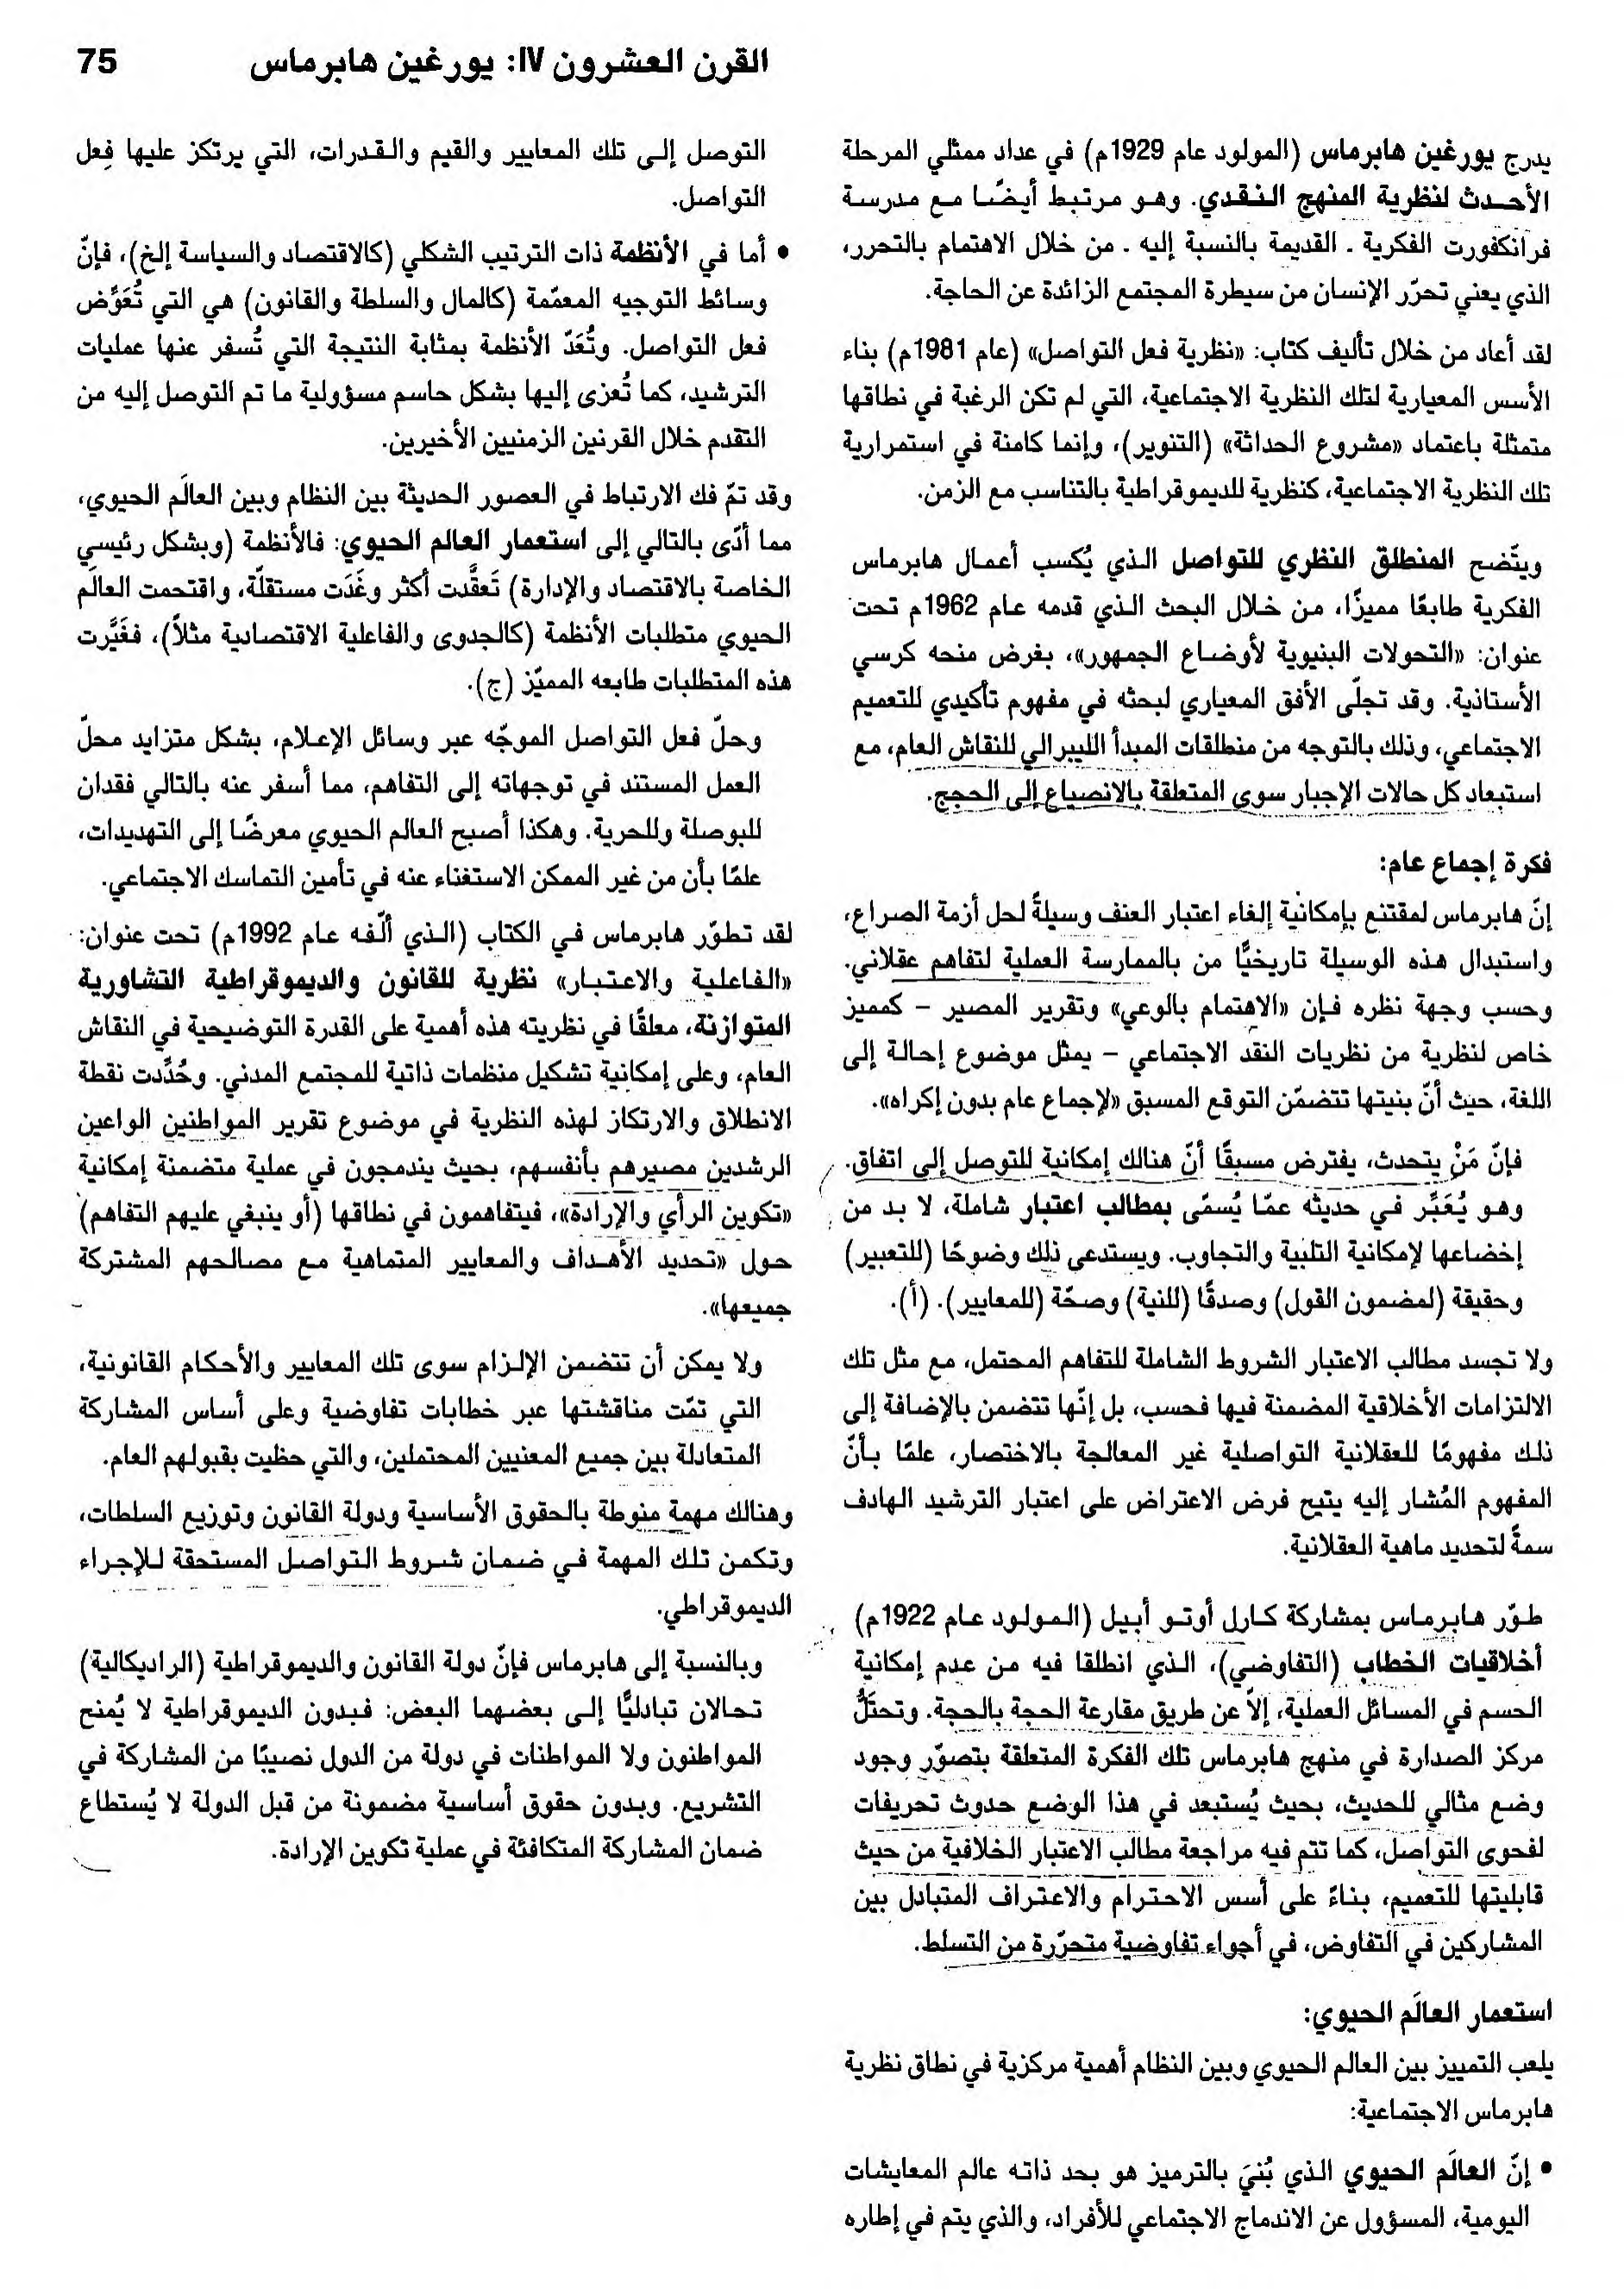 القرن العشرون IV: يورغين هابرماس 75
يدرج يورغين هابرماس (المولود عام 1929م) في عداد ممثلي المرحلة
الأحدث لنظرية المنهج النقدي. وهو مرتبط أيضًا مع مدرسة
فرانكفورت الفكرية . القديمة بالنسبة إليه . من خلال الاهتمام بالتحرر،
الذي يعني تحرّر الإنسان من سيطرة المجتمع الزائدة عن الحاجة.
لقد أعاد من خلال تأليف كتاب: «نظرية فعل التواصل» (عام 1981م) بناء
الأسس المعيارية لتلك النظرية الاجتماعية، التي لم تكن الرغبة في نطاقها
متمثلة باعتماد «مشروع الحداثة» (التنوير)، وإنما كامنة في استمرارية
تلك النظرية الاجتماعية، كنظرية للديموقراطية بالتناسب مع الزمن.
ويتّضح المنطلق النظري للتواصل الذي يُكسب أعمال هابرماس
الفكرية طابعًا مميزًا، من خلال البحث الذي قدمه عام 1962م تحت
عنوان: «التحولات البنيوية لأوضاع الجمهور»، بغرض منحه كرسي
الأستاذية. وقد تجلّى الأفق المعياري لبحثه في مفهوم تأكيدي للتعميم
الاجتماعي، وذلك بالتوجه من منطلقات المبدأ الليبرالي للنقاش العام، مع
استبعاد كل حالات الإجبار سوى المتعلقة بالانصياع إلى الحجج.
فكرة إجماع عام:
إنّ هابرماس لمقتنع بإمكانية إلغاء اعتبار العنف وسيلةً لحل أزمة الصراع،
واستبدال هذه الوسيلة تاريخيًّا من بالممارسة العملية لتفاهم عقلاني.
وحسب وجهة نظره فإن «الاهتمام بالوعي» وتقرير المصير – كمميز
خاص لنظرية من نظريات النقد الاجتماعي – يمثل موضوع إحالة إلى
اللغة، حيث أنّ بنيتها تتضمّن التوقع المسبق «لإجماع عام بدون إكراه».
فإنّ مَنْ يتحدث، يفترض مسبقًا أنّ هنالك إمكانية للتوصل إلى اتفاق.
وهو يُعَبِّر في حديثه عمّا يُسمّى بمطالب اعتبار شاملة، لا بد من
إخضاعها لإمكانية التلبية والتجاوب. ويستدعي ذلك وضوحًا (للتعبير)
وحقيقة (لمضمون القول) وصدقًا (للنية) وصحّة (للمعايير). (أ).
ولا تجسد مطالب الاعتبار الشروط الشاملة للتفاهم المحتمل، مع مثل تلك
الالتزامات الأخلاقية المضمنة فيها فحسب، بل إنّها تتضمن بالإضافة إلى
ذلك مفهومًا للعقلانية التواصلية غير المعالجة بالاختصار، علمًا بأنّ
المفهوم المُشار إليه يتيح فرض الاعتراض على اعتبار الترشيد الهادف
سمةً لتحديد ماهية العقلانية.
طوّر هابرماس بمشاركة كارل أوتو أبيل (المولود عام 1922م)
أخلاقيات الخطاب (التفاوضي)، الذي انطلقا فيه من عدم إمكانية
الحسم في المسائل العملية، إلاّ عن طريق مقارعة الحجة بالحجة. وتحتلُّ
مركز الصدارة في منهج هابرماس تلك الفكرة المتعلقة بتصوّر وجود
وضع مثالي للحديث، بحيث يُستبعد في هذا الوضع حدوث تحريفات
لفحوى التواصل، كما تتم فيه مراجعة مطالب الاعتبار الخلافية من حيث
قابليتها للتعميم، بناءً على أسس الاحترام والاعتراف المتبادل بين
المشاركين في التفاوض، في أجواء تفاوضية متحرّرة من التسلط.
استعمار العالَم الحيوي:
يلعب التمييز بين العالم الحيوي وبين النظام أهمية مركزية في نطاق نظرية
هابرماس الاجتماعية:
• إنّ العالَم الحيوي الذي بُنيَ بالترميز هو بحد ذاته عالم المعايشات
اليومية، المسؤول عن الاندماج الاجتماعي للأفراد، والذي يتم في إطاره
التوصل إلى تلك المعايير والقيم والقدرات، التي يرتكز عليها فِعل
التواصل.
• أما في الأنظمة ذات الترتيب الشكلي (كالاقتصاد والسياسة إلخ)، فإنّ
وسائط التوجيه المعمّمة (كالمال والسلطة والقانون) هي التي تُعَوِّض
فعل التواصل. وتُعَدّ الأنظمة بمثابة النتيجة التي تُسفر عنها عمليات
الترشيد، كما تُعزى إليها بشكل حاسم مسؤولية ما تم التوصل إليه من
التقدم خلال القرنين الزمنيين الأخيرين.
وقد تمّ فك الارتباط في العصور الحديثة بين النظام وبين العالَم الحيوي،
مما أدّى بالتالي إلى استعمار العالم الحيوي: فالأنظمة (وبشكل رئيسي
الخاصة بالاقتصاد والإدارة) تَعقَّدت أكثر وغَدَت مستقلّة، واقتحمت العالَم
الحيوي متطلبات الأنظمة (كالجدوى والفاعلية الاقتصادية مثلاً)، فغَيَّرت
هذه المتطلبات طابعه المميّز (ج).
وحلّ فعل التواصل الموجّه عبر وسائل الإعلام، بشكل متزايد محلّ
العمل المستند في توجهاته إلى التفاهم، مما أسفر عنه بالتالي فقدان
للبوصلة وللحرية. وهكذا أصبح العالم الحيوي معرضًا إلى التهديدات،
علمًا بأن من غير الممكن الاستغناء عنه في تأمين التماسك الاجتماعي.
لقد تطوّر هابرماس في الكتاب (الذي ألّفه عام 1992م) تحت عنوان:
«الفاعلية والاعتبار» نظرية للقانون والديموقراطية التشاورية
المتوازنة، معلقًا في نظريته هذه أهمية على القدرة التوضيحية في النقاش
العام، وعلى إمكانية تشكيل منظمات ذاتية للمجتمع المدني. وحُدِّدت نقطة
الانطلاق والارتكاز لهذه النظرية في موضوع تقرير المواطنين الواعين
الرشدين مصيرهم بأنفسهم، بحيث يندمجون في عملية متضمنة إمكانية
«تكوين الرأي والإرادة»، فيتفاهمون في نطاقها (أو ينبغي عليهم التفاهم)
حول «تحديد الأهداف والمعايير المتماهية مع مصالحهم المشتركة
جميعها».
ولا يمكن أن تتضمن الإلزام سوى تلك المعايير والأحكام القانونية،
التي تمّت مناقشتها عبر خطابات تفاوضية وعلى أساس المشاركة
المتعادلة بين جميع المعنيين المحتملين، والتي حظيت بقبولهم العام.
وهنالك مهمة منوطة بالحقوق الأساسية ودولة القانون وتوزيع السلطات،
وتكمن تلك المهمة في ضمان شروط التواصل المستحقة للإجراء
الديموقراطي.
وبالنسبة إلى هابرماس فإنّ دولة القانون والديموقراطية (الراديكالية)
تحالان تبادليًّا إلى بعضهما البعض: فبدون الديموقراطية لا يُمنح
المواطنون ولا المواطنات في دولة من الدول نصيبًا من المشاركة في
التشريع. وبدون حقوق أساسية مضمونة من قبل الدولة لا يُستطاع
ضمان المشاركة المتكافئة في عملية تكوين الإرادة.